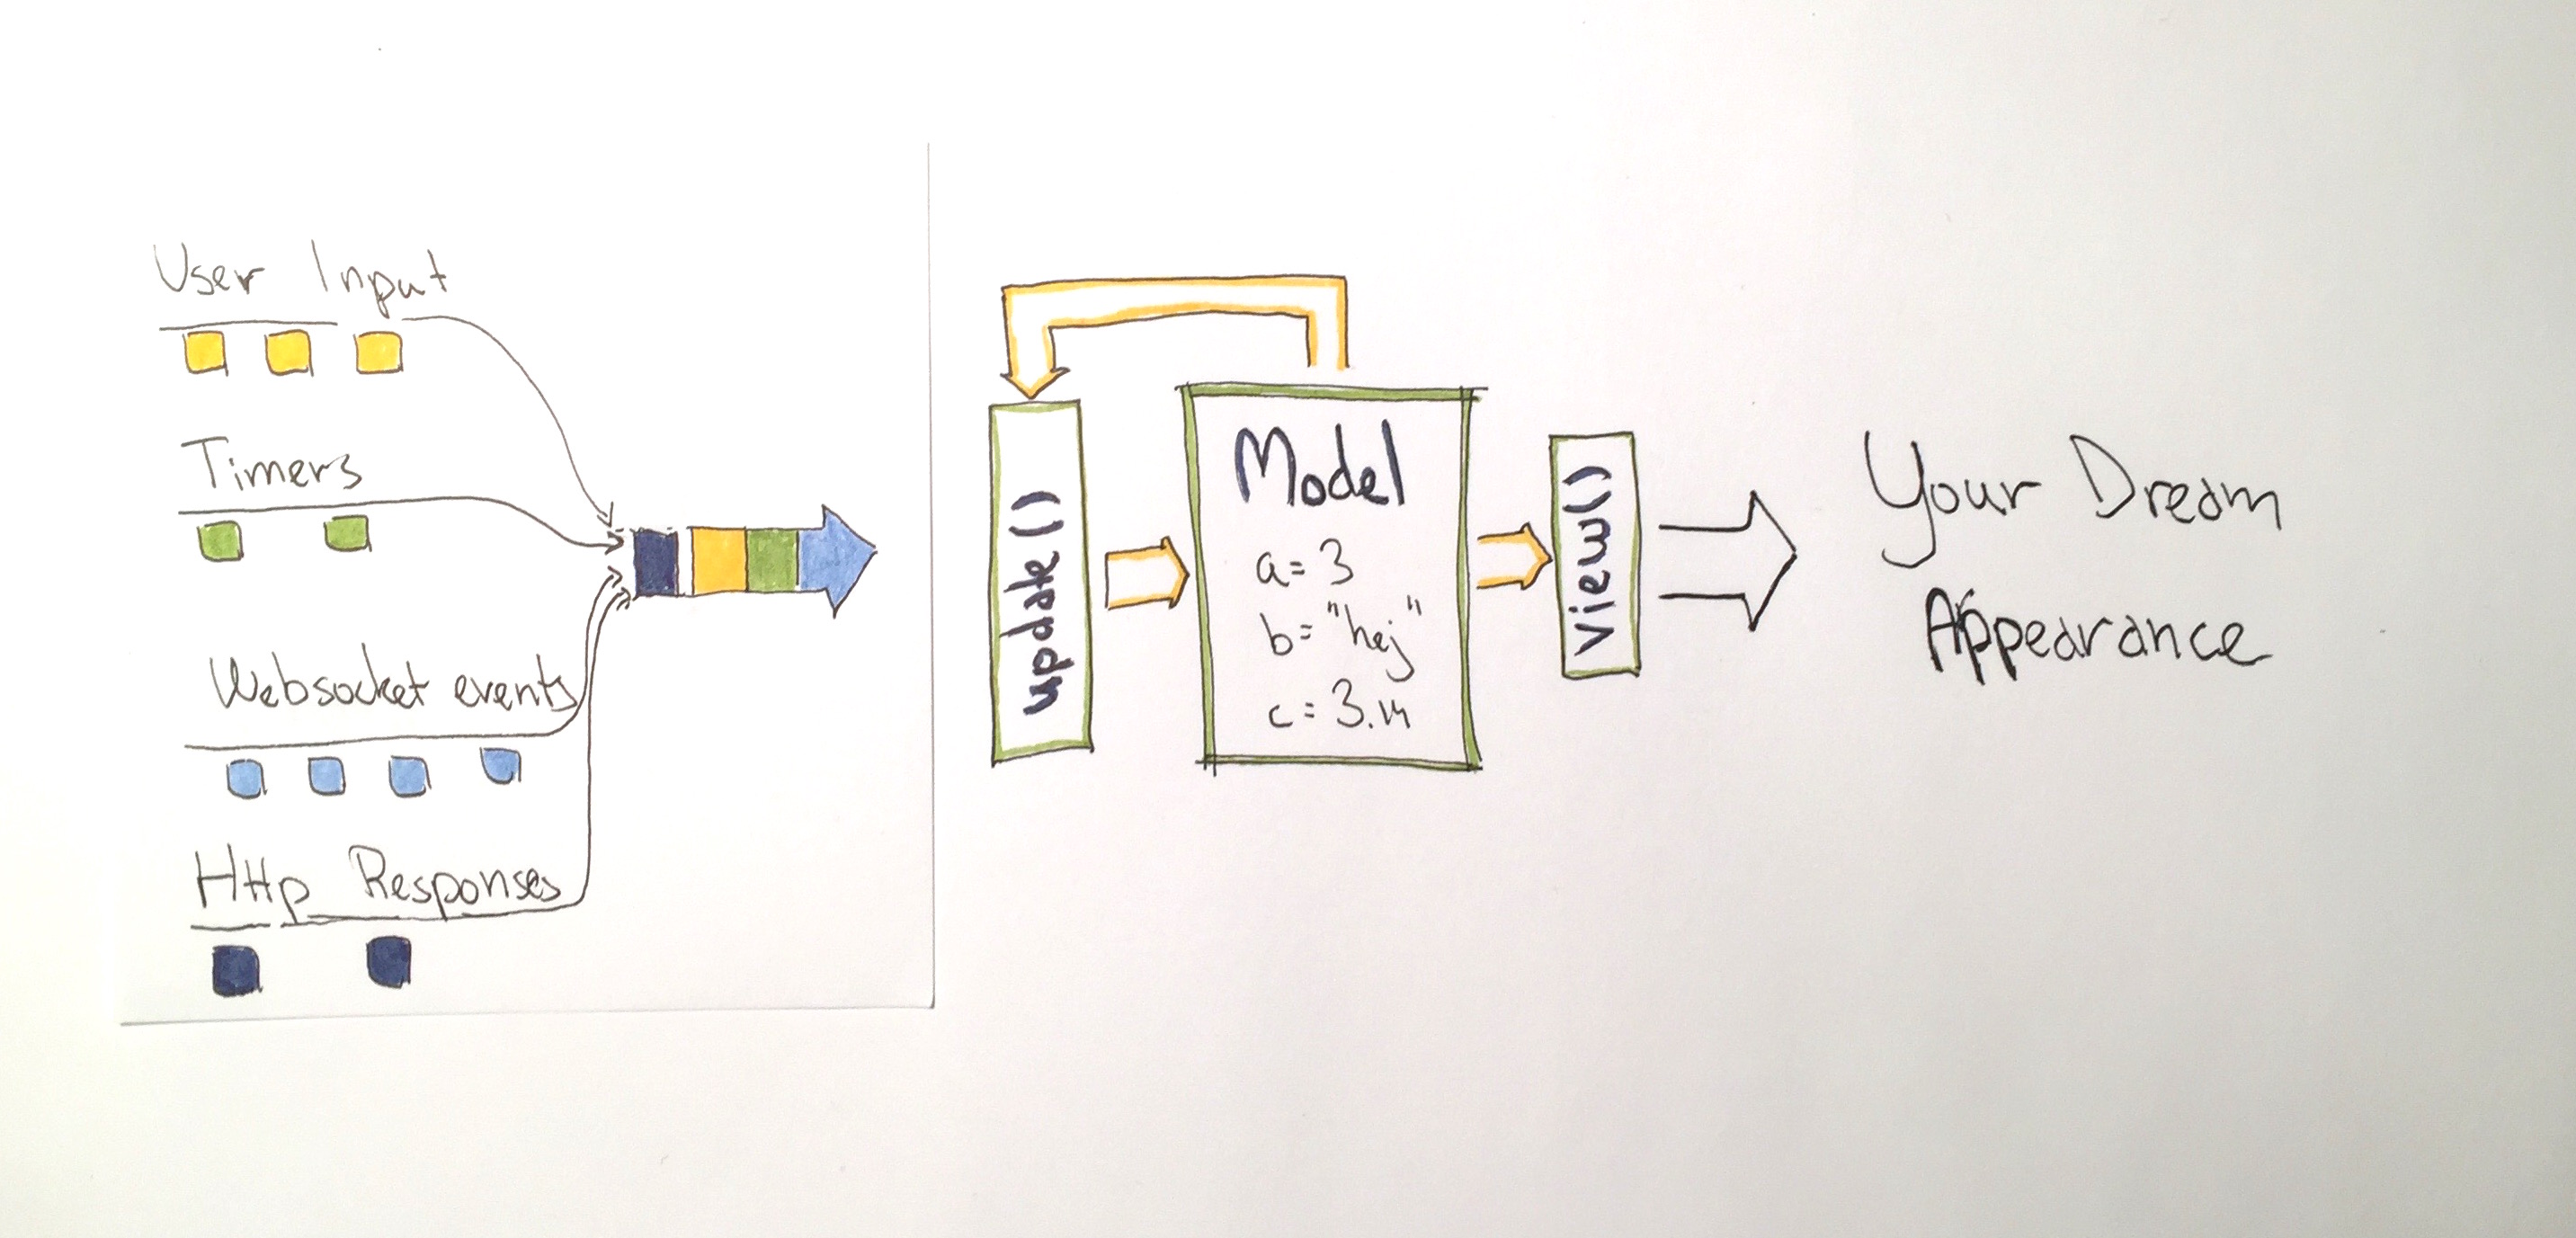 User Input
Timers
Websocket events
Http Responses
update()
Model
a=3
b="hej"
c=3.14
view()
Your Dream
Appearance